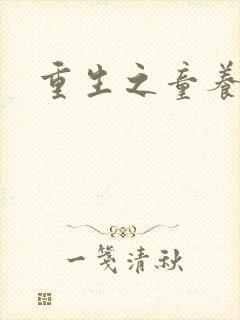 重生之童养
一笺清秋